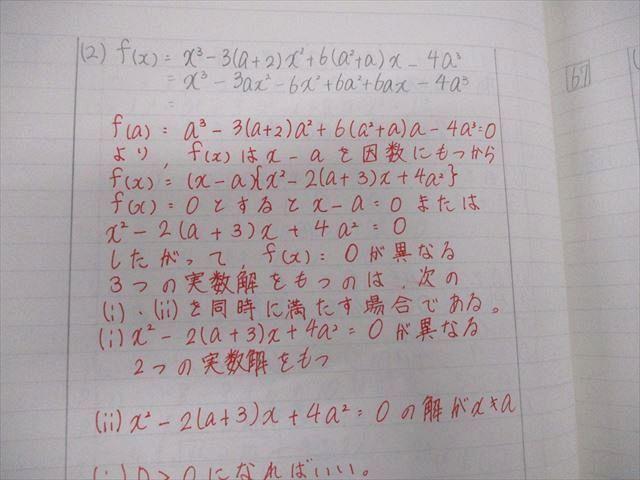 (2) f(x) = x³ - 3(a+2)x² + 6(a²+a)x - 4a³
= x³ - 3ax² - 6x² + 6a² + 6ax - 4a³
=
f(a) = a³ - 3(a+2)a² + 6(a²+a)a - 4a³ = 0
より、f(x)はx-aを因数にもつから
f(x) = (x-a){x² - 2(a+3)x + 4a²}
f(x) = 0とするとx-a = 0または
x² - 2(a+3)x + 4a² = 0
したがって、f(x) = 0が異なる
3つの実数解をもつのは、次の
(i)・(ii)を同時に満たす場合である。
(i) x² - 2(a+3)x + 4a² = 0が異なる
2つの実数解をもつ
(ii) x² - 2(a+3)x + 4a² = 0の解がx≠a
(i) D > 0になればいい。
67